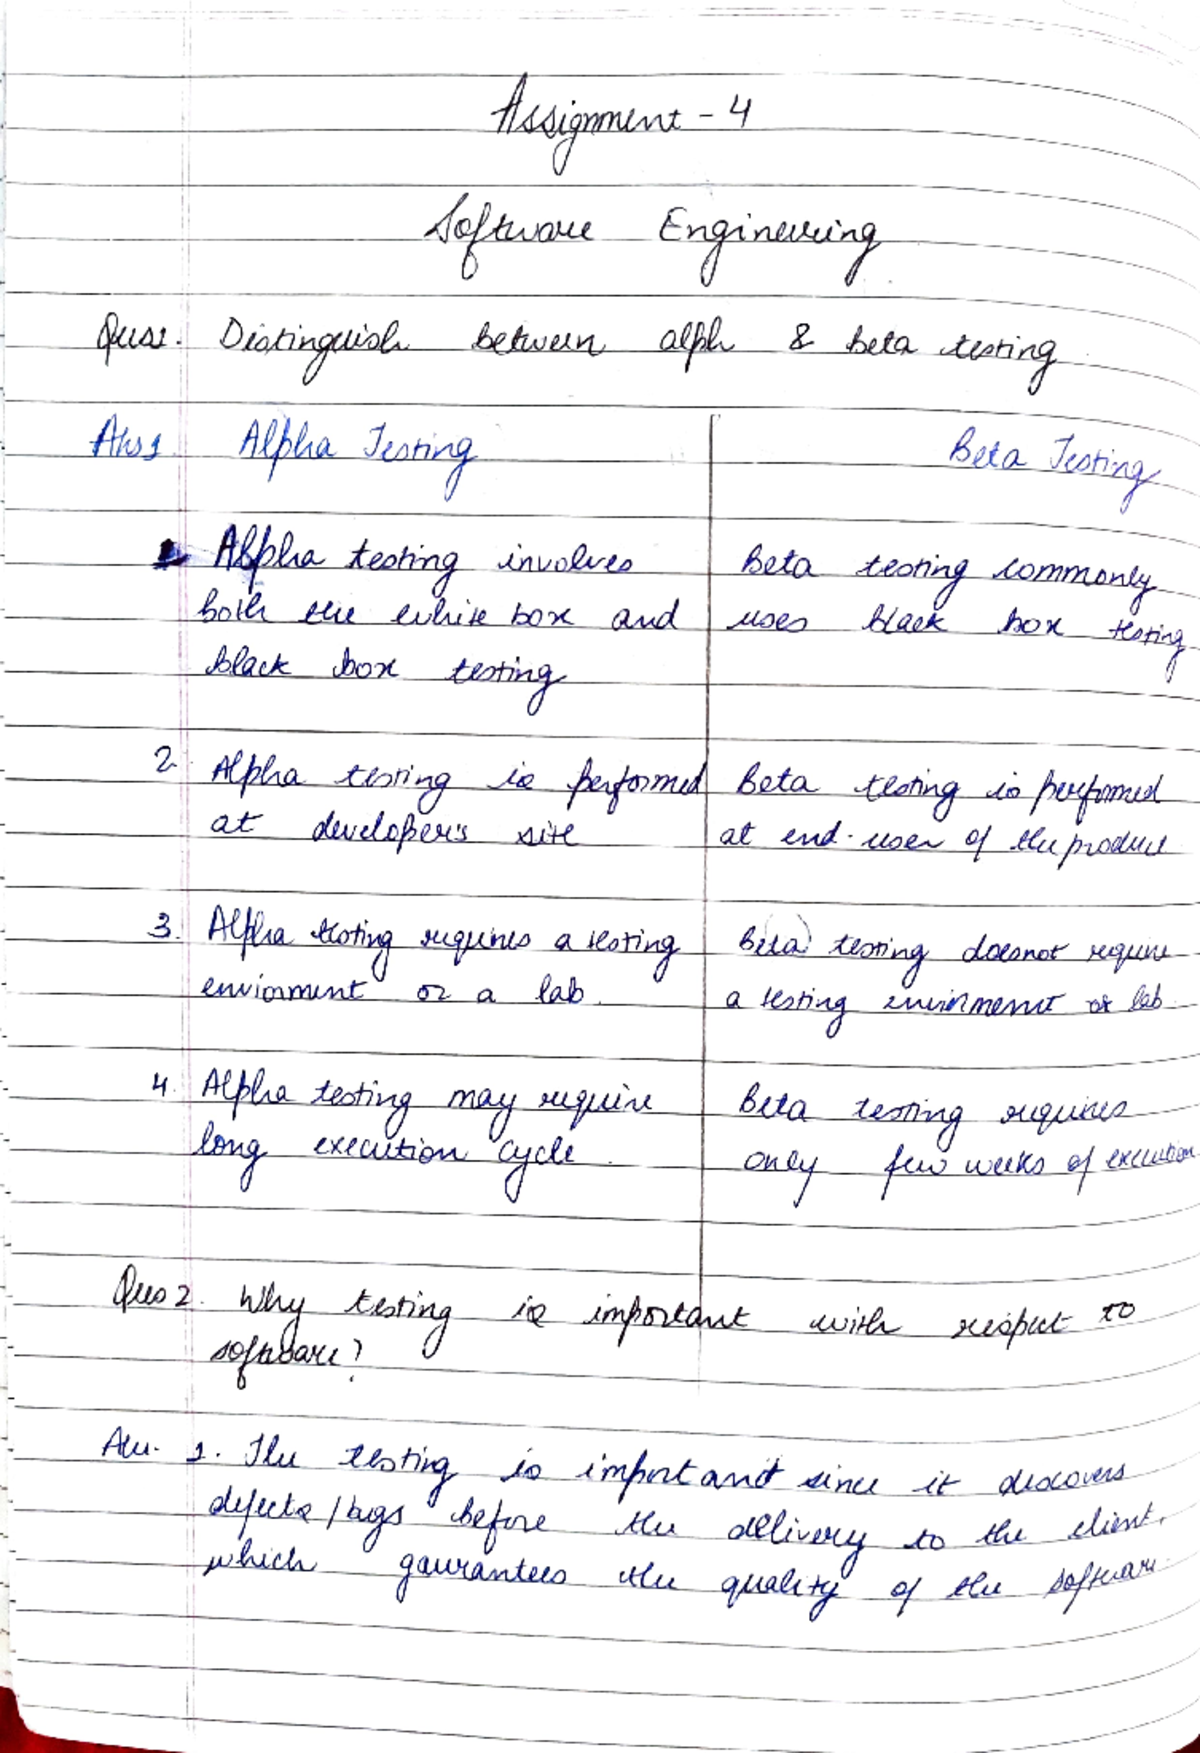 Assignment - 4
Software Engineering
Ques1. Distinguish between alph & beta testing
Ans1 Alpha Testing Beta Testing
1. Alpha testing involves Beta testing commonly
both the white box and uses black box testing
black box testing
2. Alpha testing is performed Beta testing is performed
at developer's site at end-user of the product
3. Alpha testing requires a testing Beta testing doesnot require
enviorment or a lab. a testing envirnment or lab
4. Alpha testing may require Beta testing requires
long execution cycle. only few weeks of execution
Ques 2. Why testing is important with respect to
software?
Ans. 1. The testing is important since it discovers
defects/bugs before the delivery to the client,
which gaurantees the quality of the software.